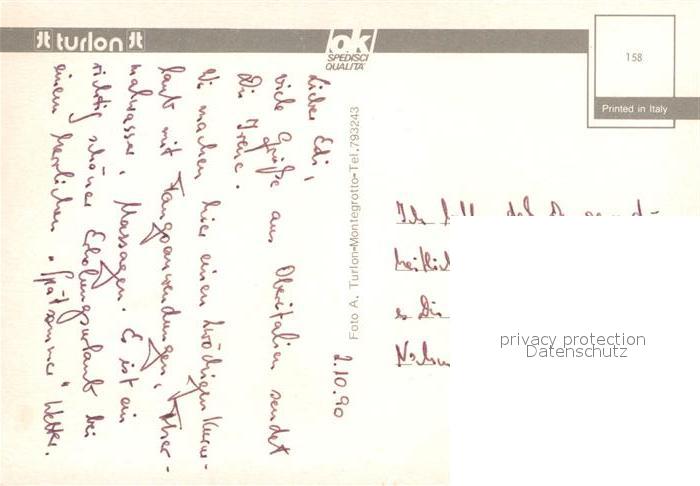 turlon
ok
SPEDISCI
QUALITA'
158
Printed in Italy
Foto A. Turlon-Montegrotto-Tel.793243
2.10.90
Lieber Edi,
viele Grüße aus Oberitalien sendet
Dir Irene.
Wir machen hier einen 2wöchigen Kurur-
laub mit Fangoanwendungen, Ther-
malwasser, Massagen. Es ist ein
richtig schöner Erholungsurlaub bei
einem herrlichen "Spätsommer" Wetter.
Ich
es Dir
privacy protection
Datenschutz